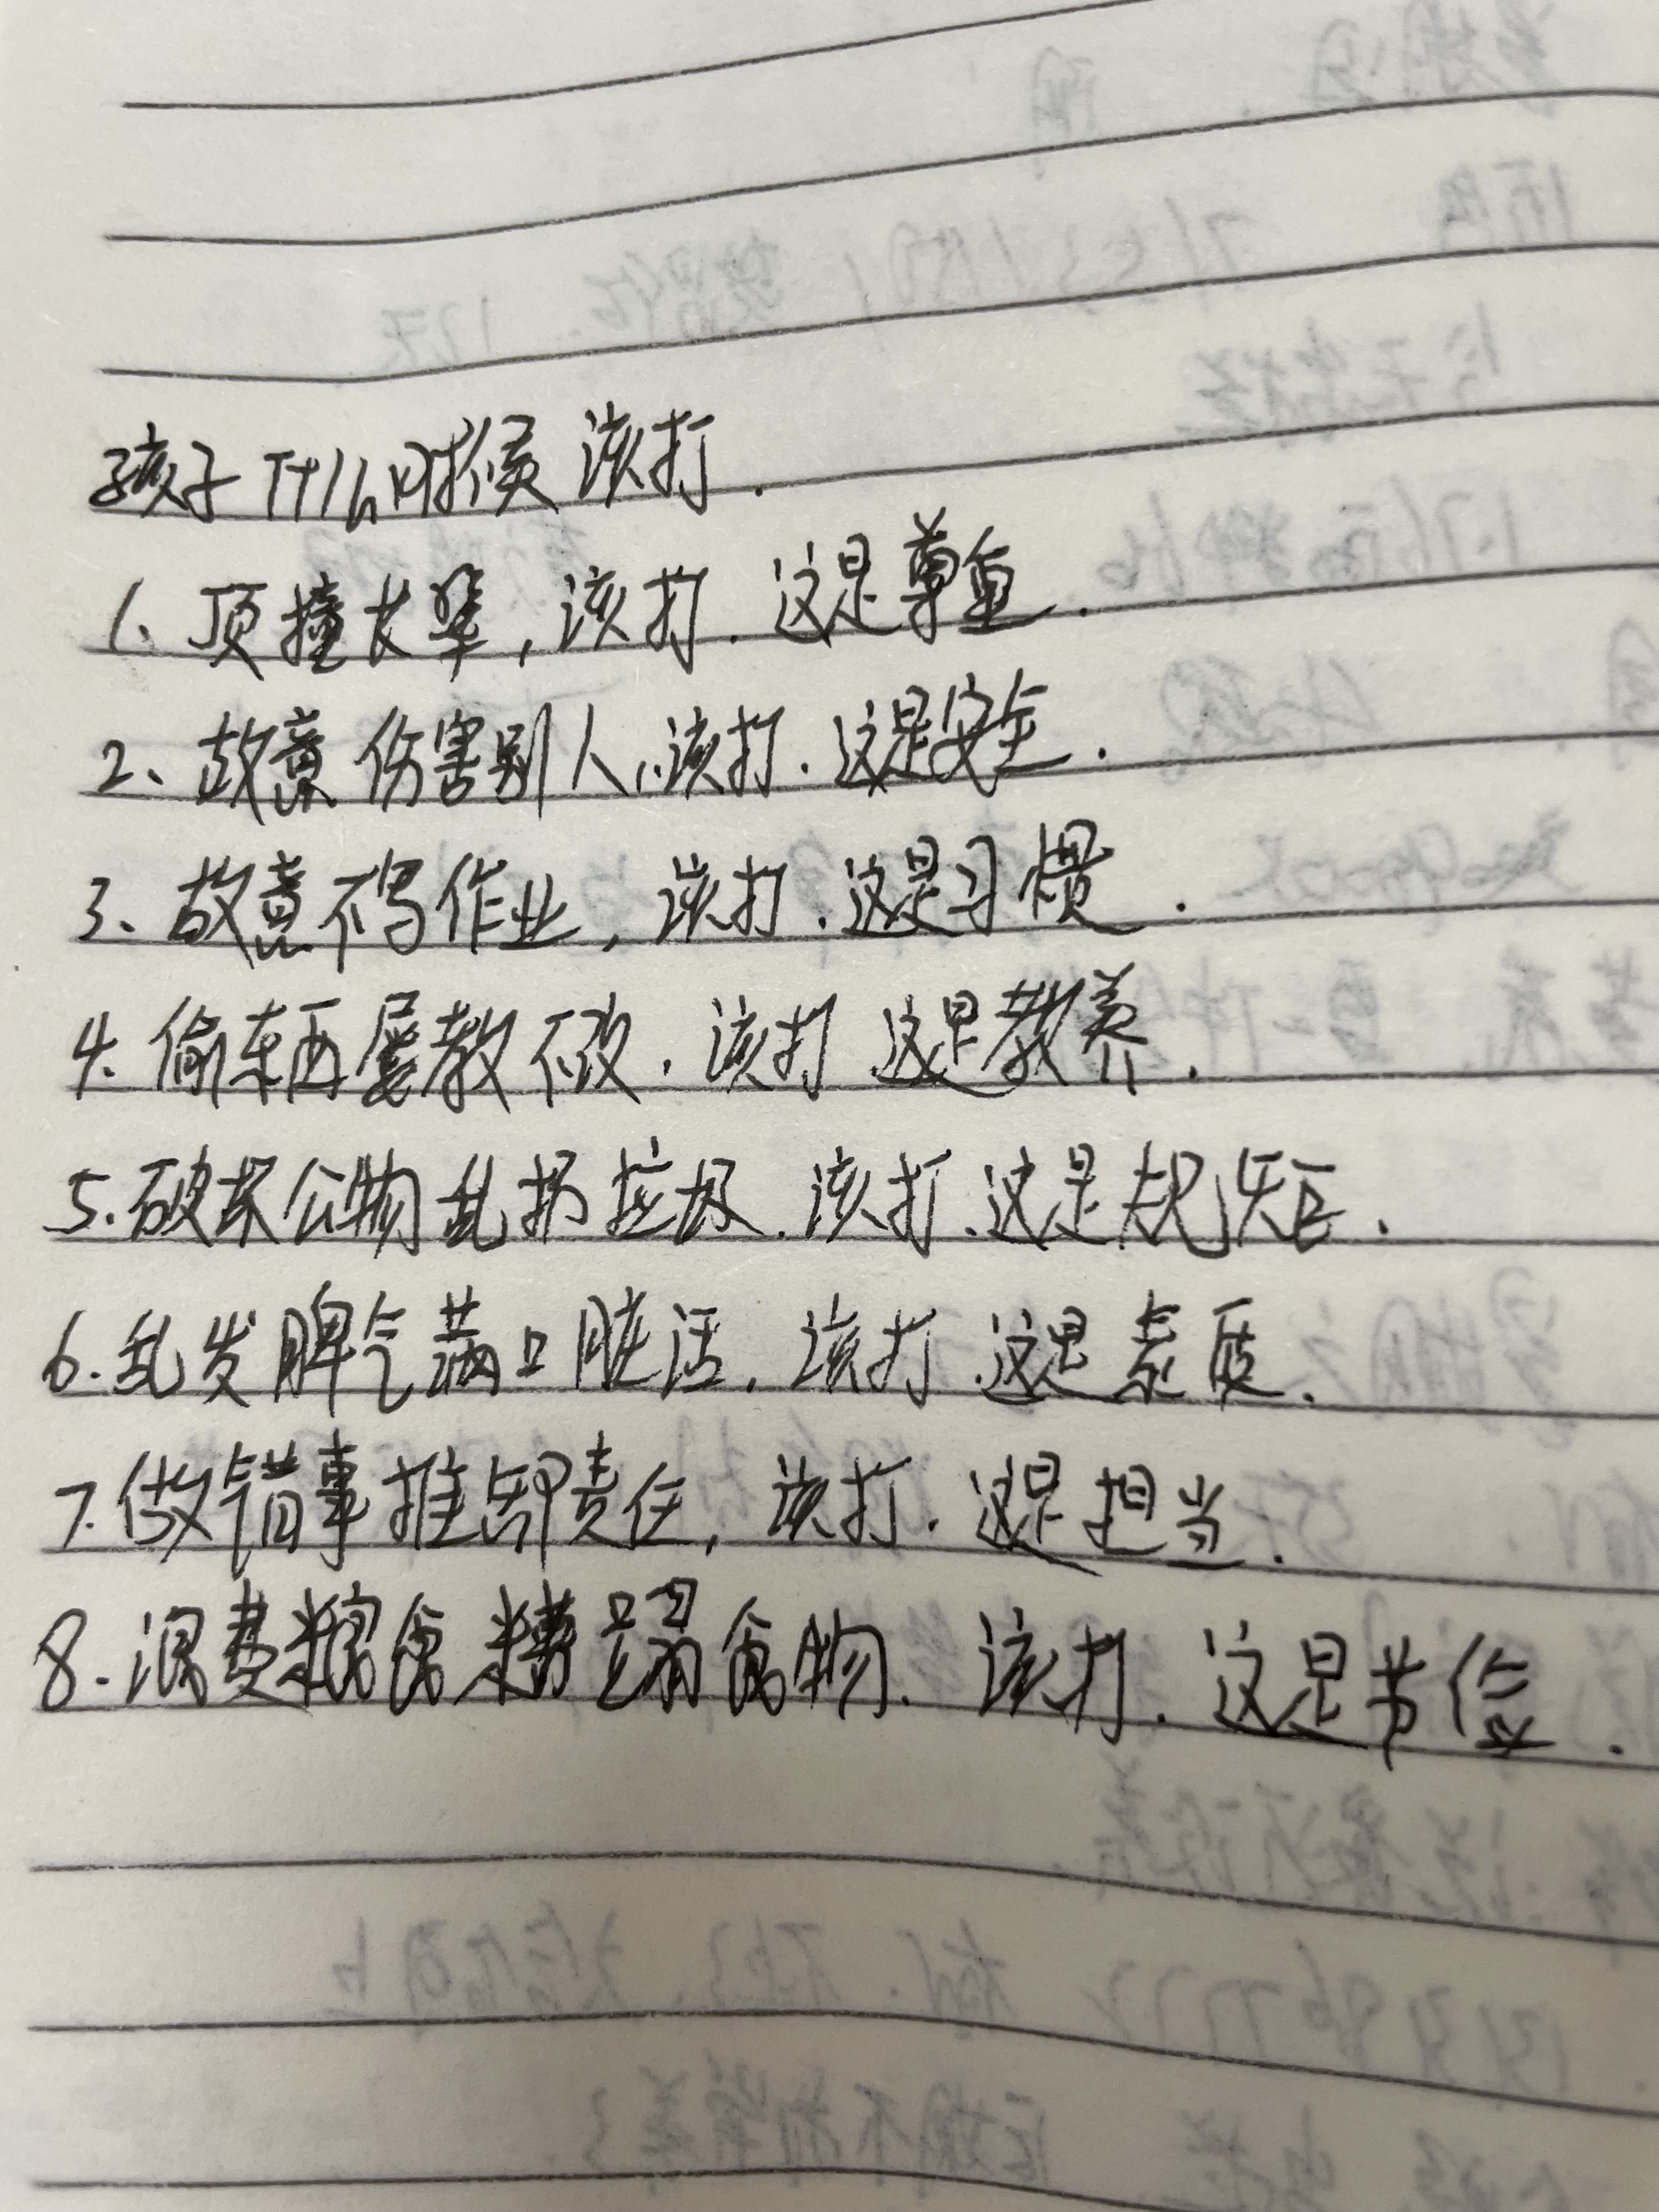 孩子什么时候该打.
1、顶撞长辈,该打.这是尊重.
2、故意伤害别人,该打.这是安全.
3、故意不写作业,该打.这是习惯.
4.偷东西屡教不改.该打.这是教养.
5.破坏公物乱扔垃圾.该打.这是规矩.
6.乱发脾气满口脏话.该打.这是素质.
7.做错事推卸责任,该打.这是担当.
8.浪费粮食糟蹋食物.该打.这是节俭.